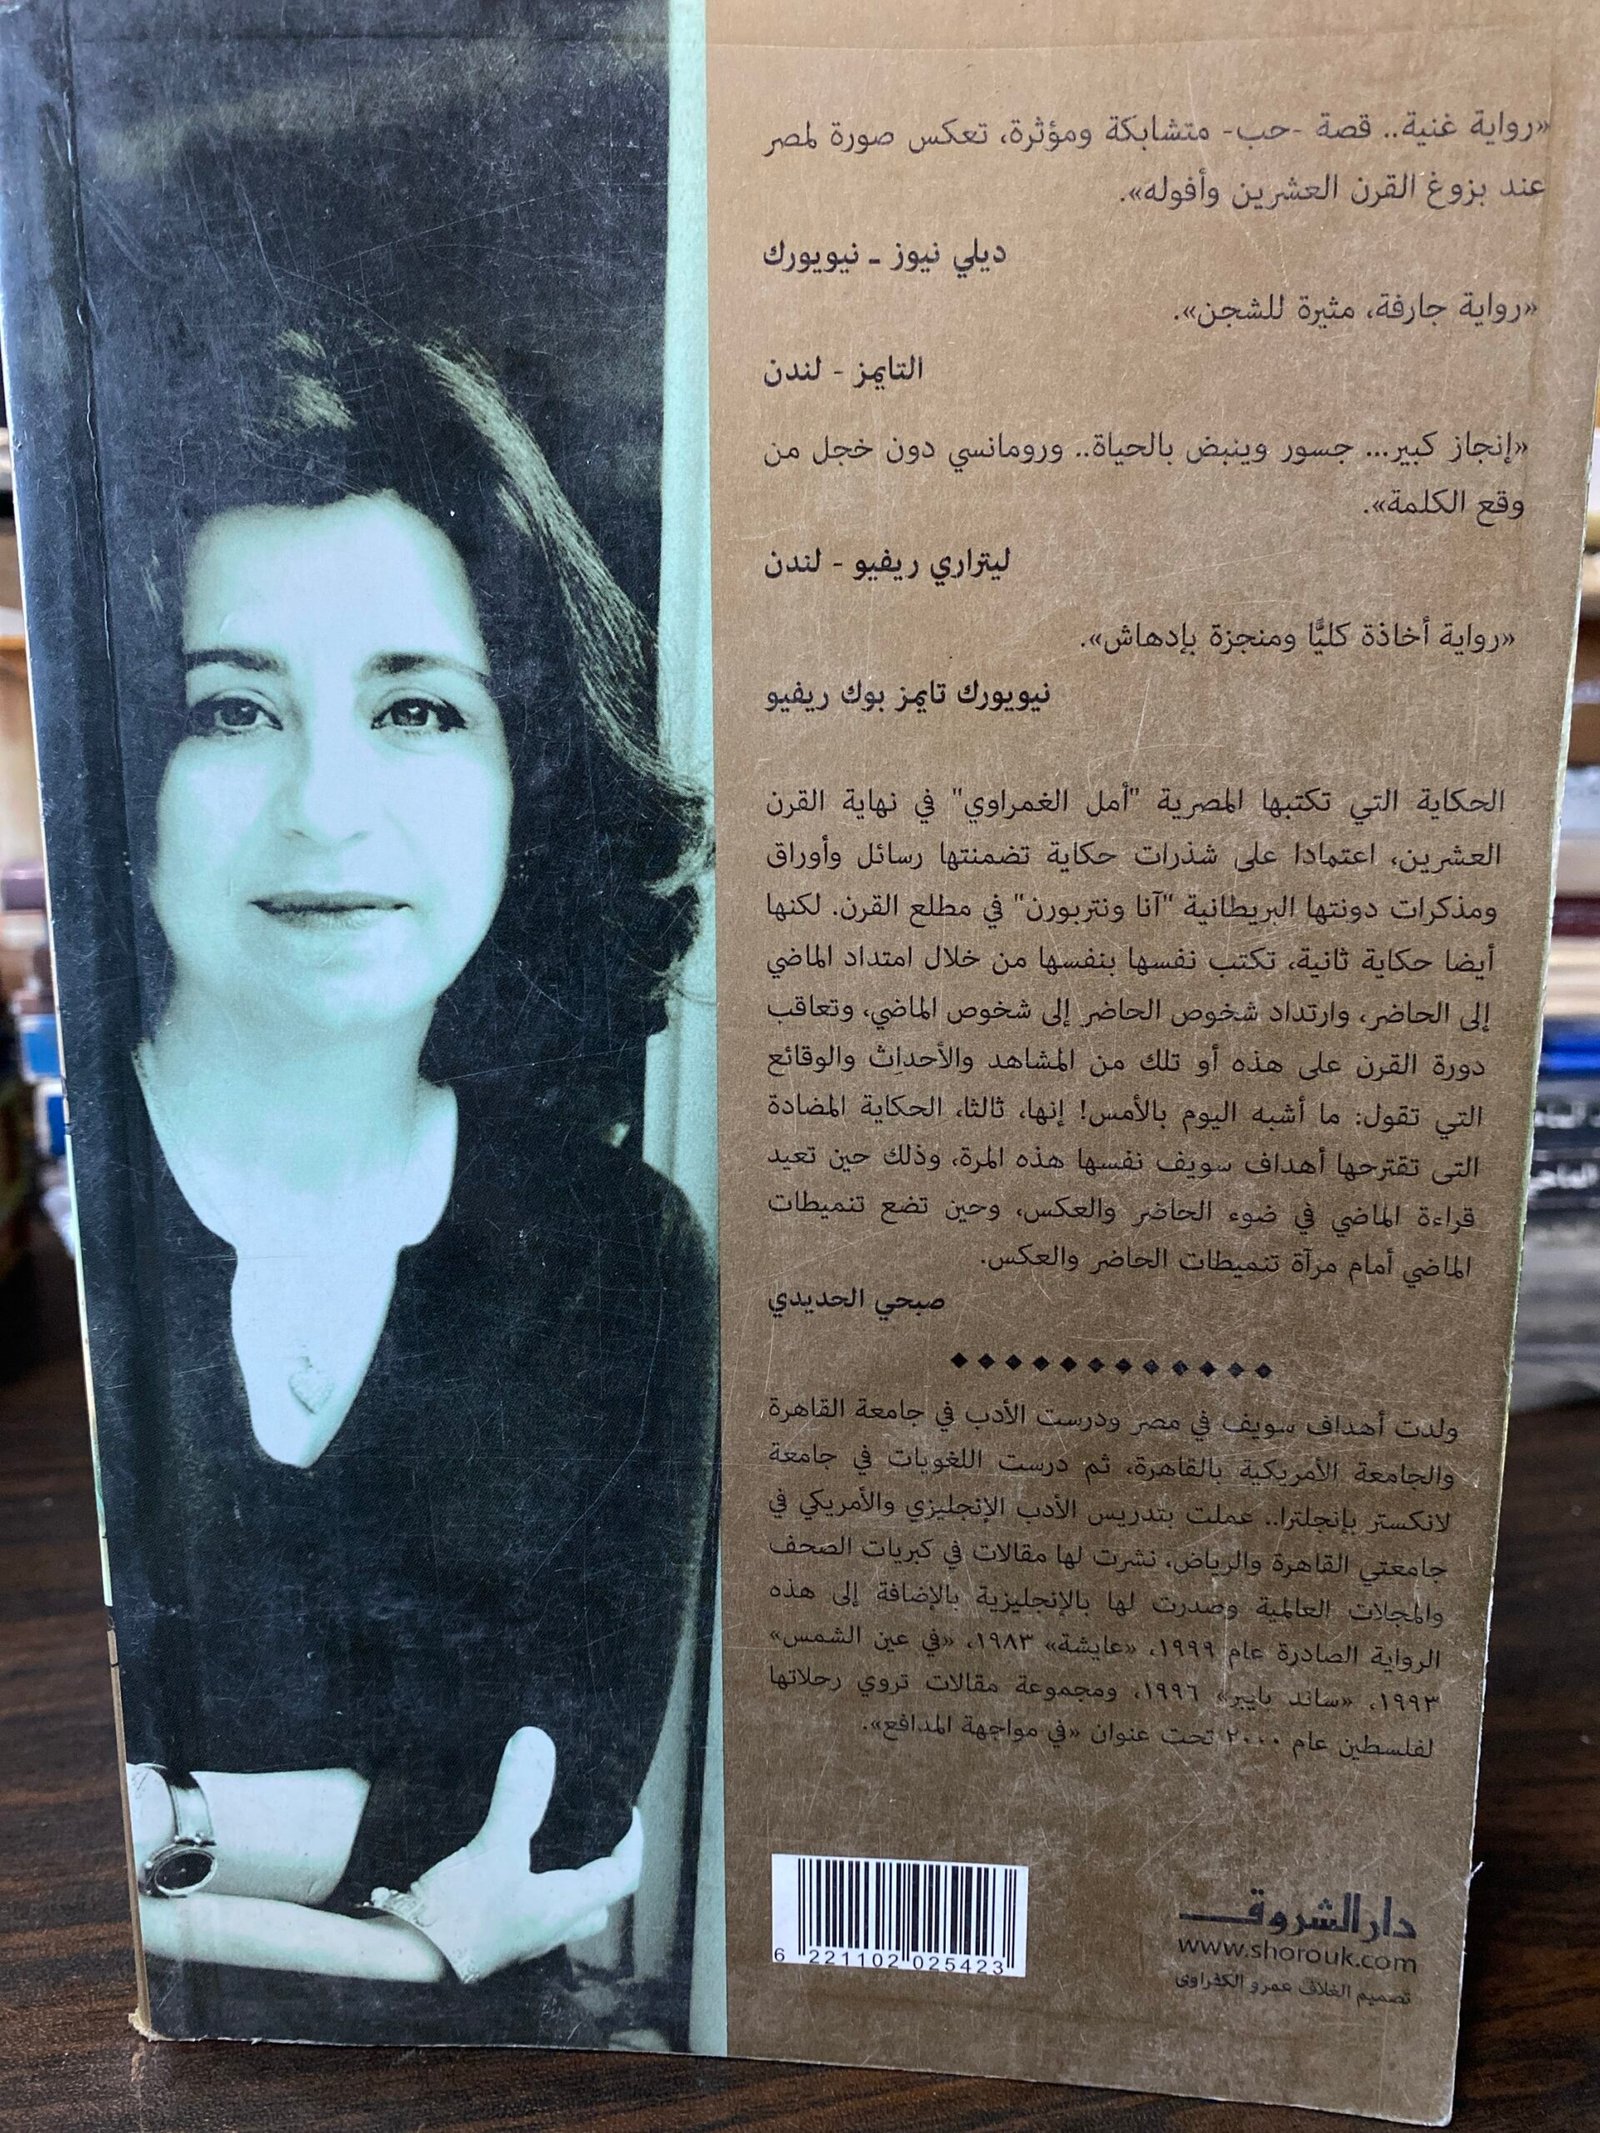 «رواية غنية.. قصة -حب- متشابكة ومؤثرة، تعكس صورة لمصر
عند بزوغ القرن العشرين وأفوله».
ديلي نيوز ـ نيويورك
«رواية جارفة، مثيرة للشجن».
التايمز - لندن
«إنجاز كبير... جسور وينبض بالحياة.. ورومانسي دون خجل من
وقع الكلمة».
ليتراري ريفيو - لندن
«رواية أخاذة كليًّا ومنجزة بإدهاش».
نيويورك تايمز بوك ريفيو
الحكاية التي تكتبها المصرية "أمل الغمراوي" في نهاية القرن
العشرين، اعتمادا على شذرات حكاية تضمنتها رسائل وأوراق
ومذكرات دونتها البريطانية "آنا ونتربورن" في مطلع القرن. لكنها
أيضا حكاية ثانية، تكتب نفسها بنفسها من خلال امتداد الماضي
إلى الحاضر، وارتداد شخوص الحاضر إلى شخوص الماضي، وتعاقب
دورة القرن على هذه أو تلك من المشاهد والأحداث والوقائع
التي تقول: ما أشبه اليوم بالأمس! إنها، ثالثا، الحكاية المضادة
التى تقترحها أهداف سويف نفسها هذه المرة، وذلك حين تعيد
قراءة الماضي في ضوء الحاضر والعكس، وحين تضع تنميطات
الماضي أمام مرآة تنميطات الحاضر والعكس.
صبحي الحديدي
ولدت أهداف سويف في مصر ودرست الأدب في جامعة القاهرة
والجامعة الأمريكية بالقاهرة، ثم درست اللغويات في جامعة
لانكستر بإنجلترا.. عملت بتدريس الأدب الإنجليزي والأمريكي في
جامعتي القاهرة والرياض، نشرت لها مقالات في كبريات الصحف
والمجلات العالمية وصدرت لها بالإنجليزية بالإضافة إلى هذه
الرواية الصادرة عام ١٩٩٩، «عايشة» ١٩٨٣، «في عين الشمس»
١٩٩٣، «ساند بايبر» ١٩٩٦، ومجموعة مقالات تروي رحلاتها
لفلسطين عام ٢٠٠٠ تحت عنوان «في مواجهة المدافع».
6 221102 025423
دار الشروق
www.shorouk.com
تصميم الغلاف عمرو الكفراوى